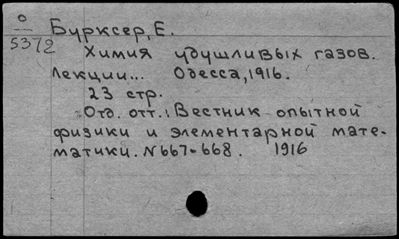 О
5372
Бурксер, Е.
Химия удушливых газов.
Лекции... Одесса, 1916.
23 стр.
Отд. отт.: Вестник опытной
физики и элементарной мате-
матики. N667-668. 1916